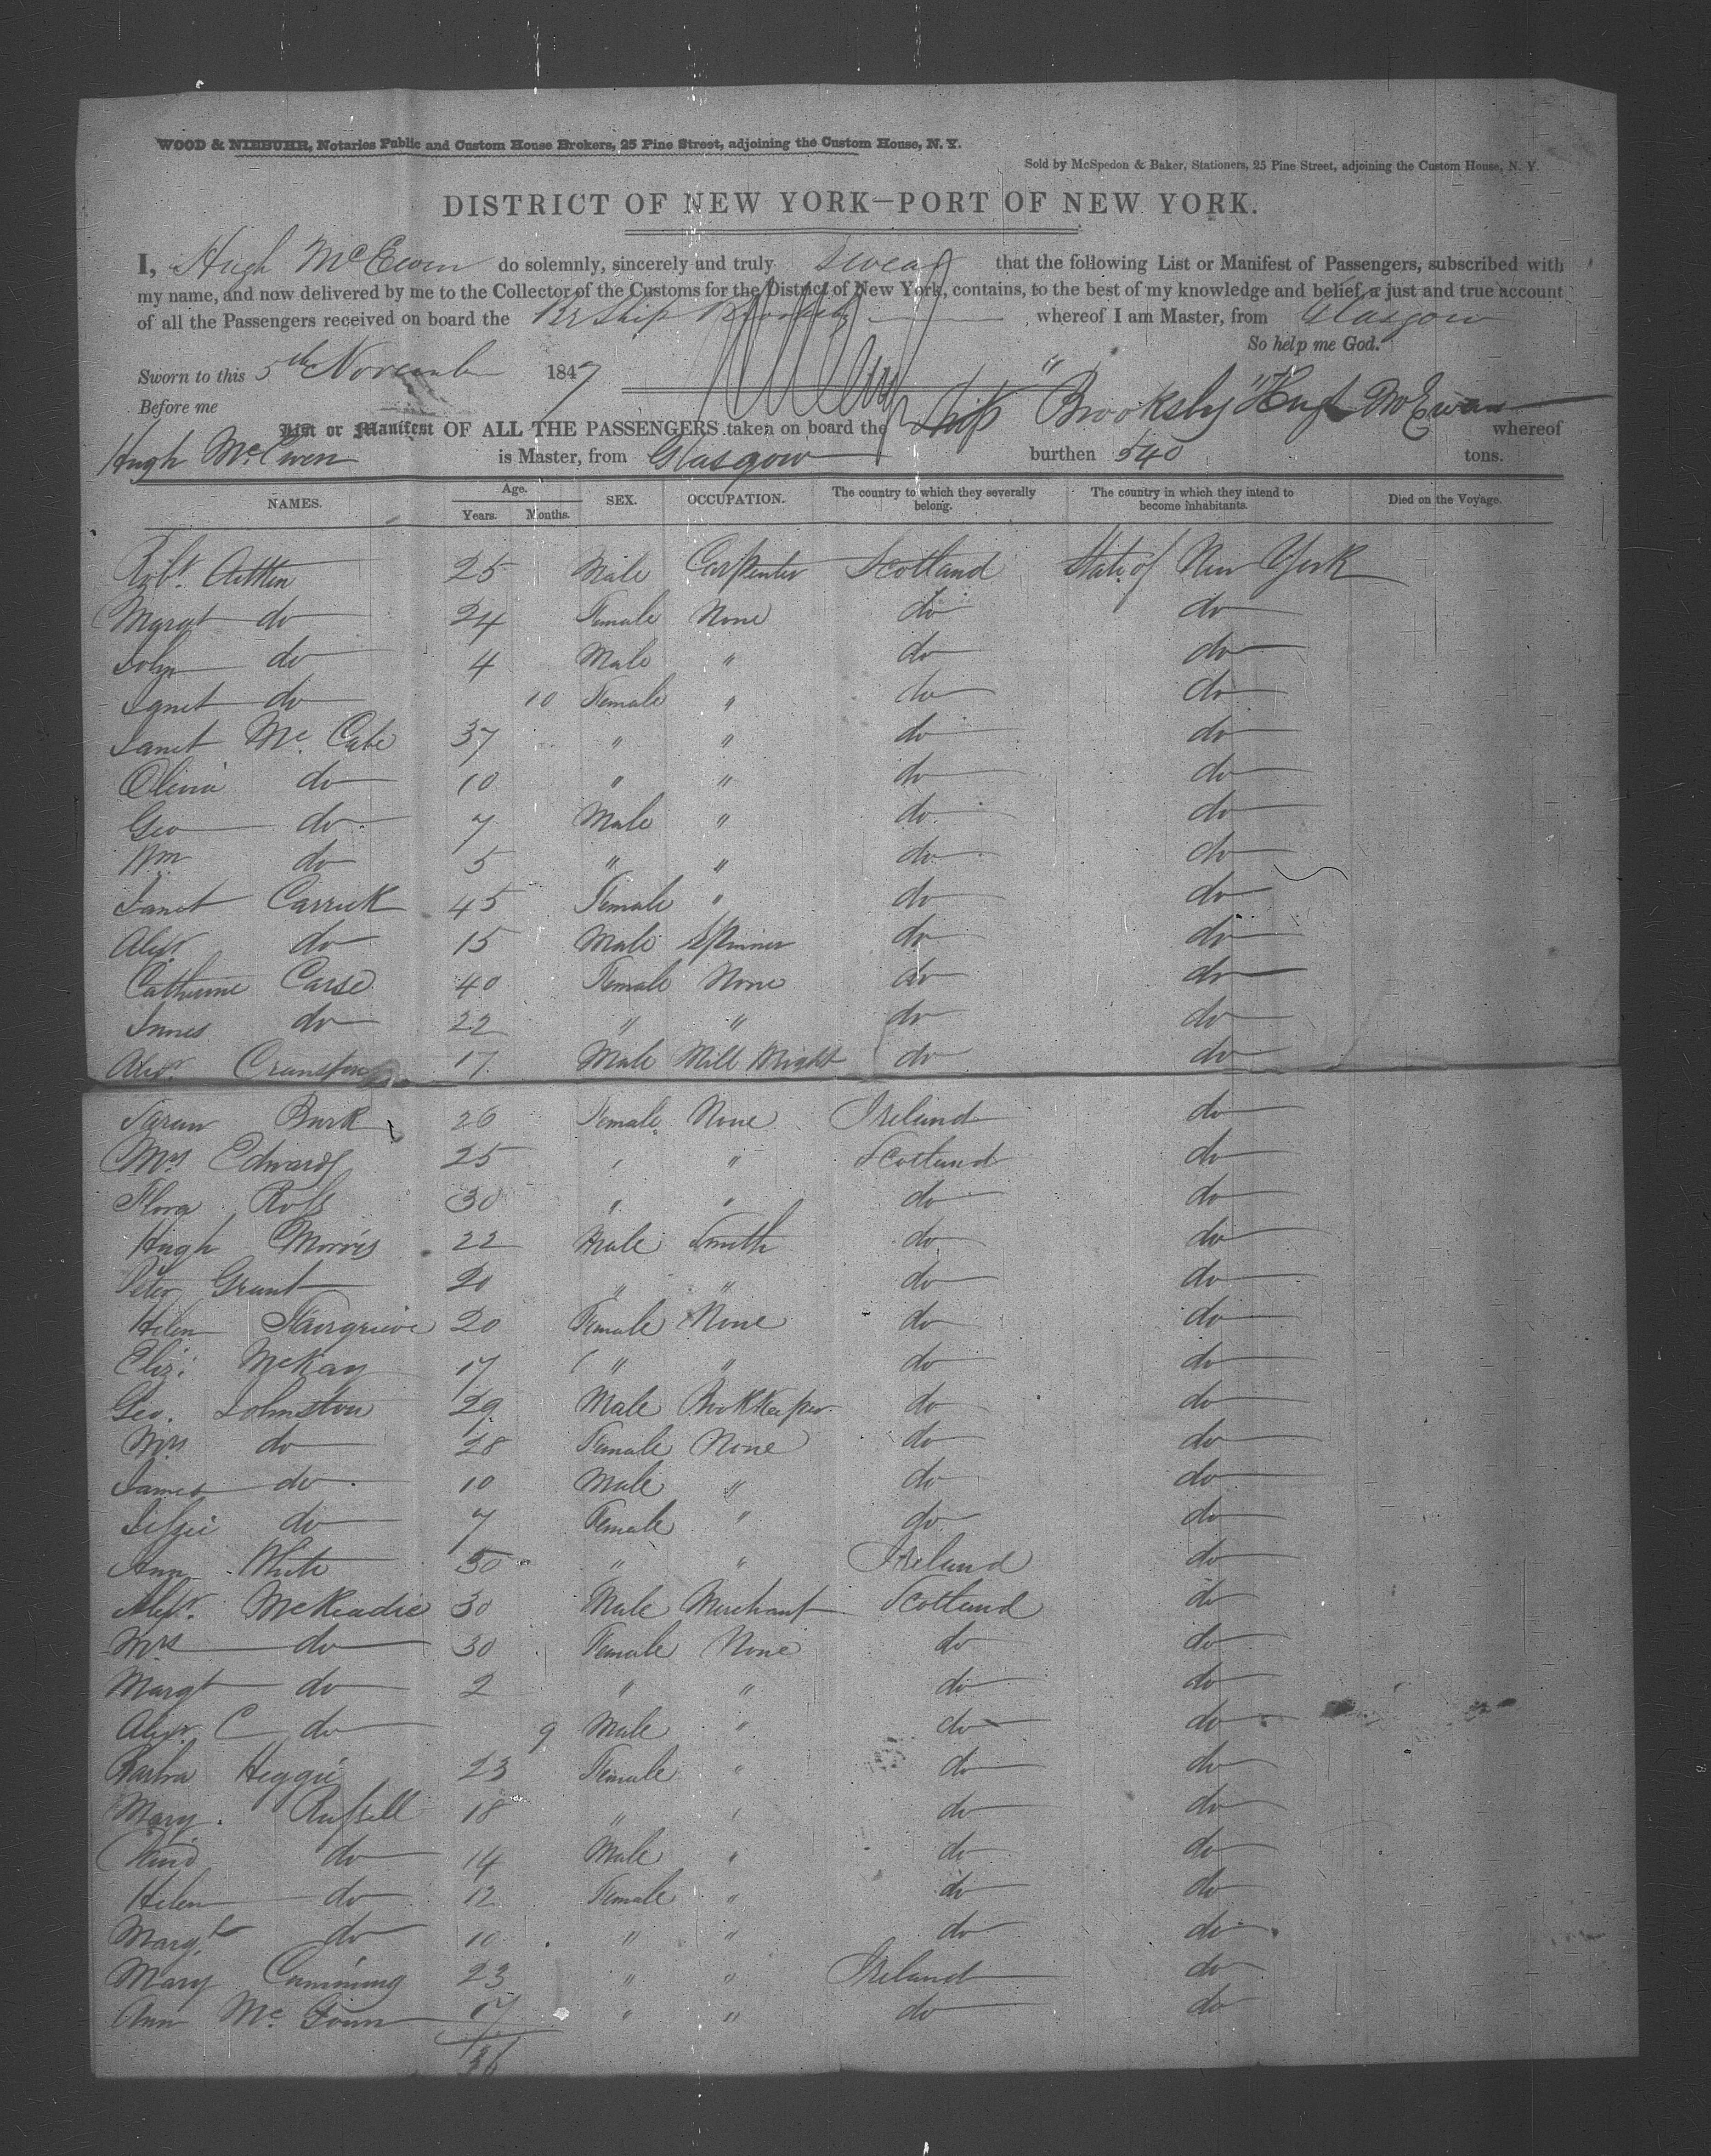 WOOD & NIEBUHR, Notaries Public and Custom House Brokers, 25 Pine Street, adjoining the Custom House, N. Y.
Sold by McSpedon & Baker, Stationers, 25 Pine Street, adjoining the Custom House, N. Y.
DISTRICT OF NEW YORK—PORT OF NEW YORK.
I, Hugh McEwen do solemnly, sincerely and truly swear that the following List or Manifest of Passengers, subscribed with
my name, and now delivered by me to the Collector of the Customs for the District of New York, contains, to the best of my knowledge and belief, a just and true account
of all the Passengers received on board the Br Ship Brooksby whereof I am Master, from Glasgow
So help me God.
Sworn to this 5th November 1847
Before me
"Hugh McEwan
List or Manifest OF ALL THE PASSENGERS taken on board the Ship "Brooksby" whereof
Hugh McEwen is Master, from Glasgow burthen 540 tons.
NAMES. Age. Years. Months. SEX. OCCUPATION. The country to which they severally belong. The country in which they intend to become inhabitants. Died on the Voyage.
Robt. Aitken 25 Male Carpenter Scotland State of New York
Margt do 24 Female None do do
John do 4 Male " do do
Janet do 10 Female " do do
Janet Mc. Cabe 37 " " do do
Olivia do 10 " " do do
Geo do 7 Male " do do
Wm do 5 " " do do
Janet Carrick 45 Female " do do
Alexr. do 15 Male Spinner do do
Catherine Carse 40 Female None do do
Innes do 22 " " do do
Alexr. Cranston 17 Male Mill Wright do do
Sarah Burk 26 Female None Ireland do
Mrs Edwards 25 " " Scotland do
Flora Ross 30 " " do do
Hugh Morris 22 Male Smith do do
Peter Grant 20 " " do do
Helen Fairgrieve 20 Female None do do
Eliz: McKay 17 " " do do
Geo. Johnston 29 Male Bookkeeper do do
Mrs do 28 Female None do do
James do 10 Male " do do
Jessie do 7 Female " do do
Ann White 50 " " Ireland do
Alexr. McKeadie 30 Male Merchant Scotland do
Mrs do 30 Female None do do
Margt do 2 " " do do
Alexr. C do 9 Male " do do
Barbra Heggie 23 Female " do do
Mary Russell 18 " " do do
David do 14 Male " do do
Helen do 12 Female " do do
Margt do 10 " " do do
Mary Cumming 23 " " Ireland do
Ann Mc. Gown 17 " " do do
36